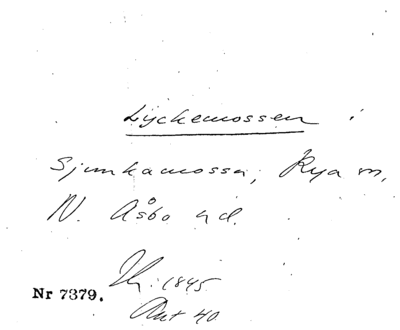 Lyckemossen i
Sjunkamossa, Rya m,
N. Åsbo hd.
1845
Nr 7379.
Akt 40